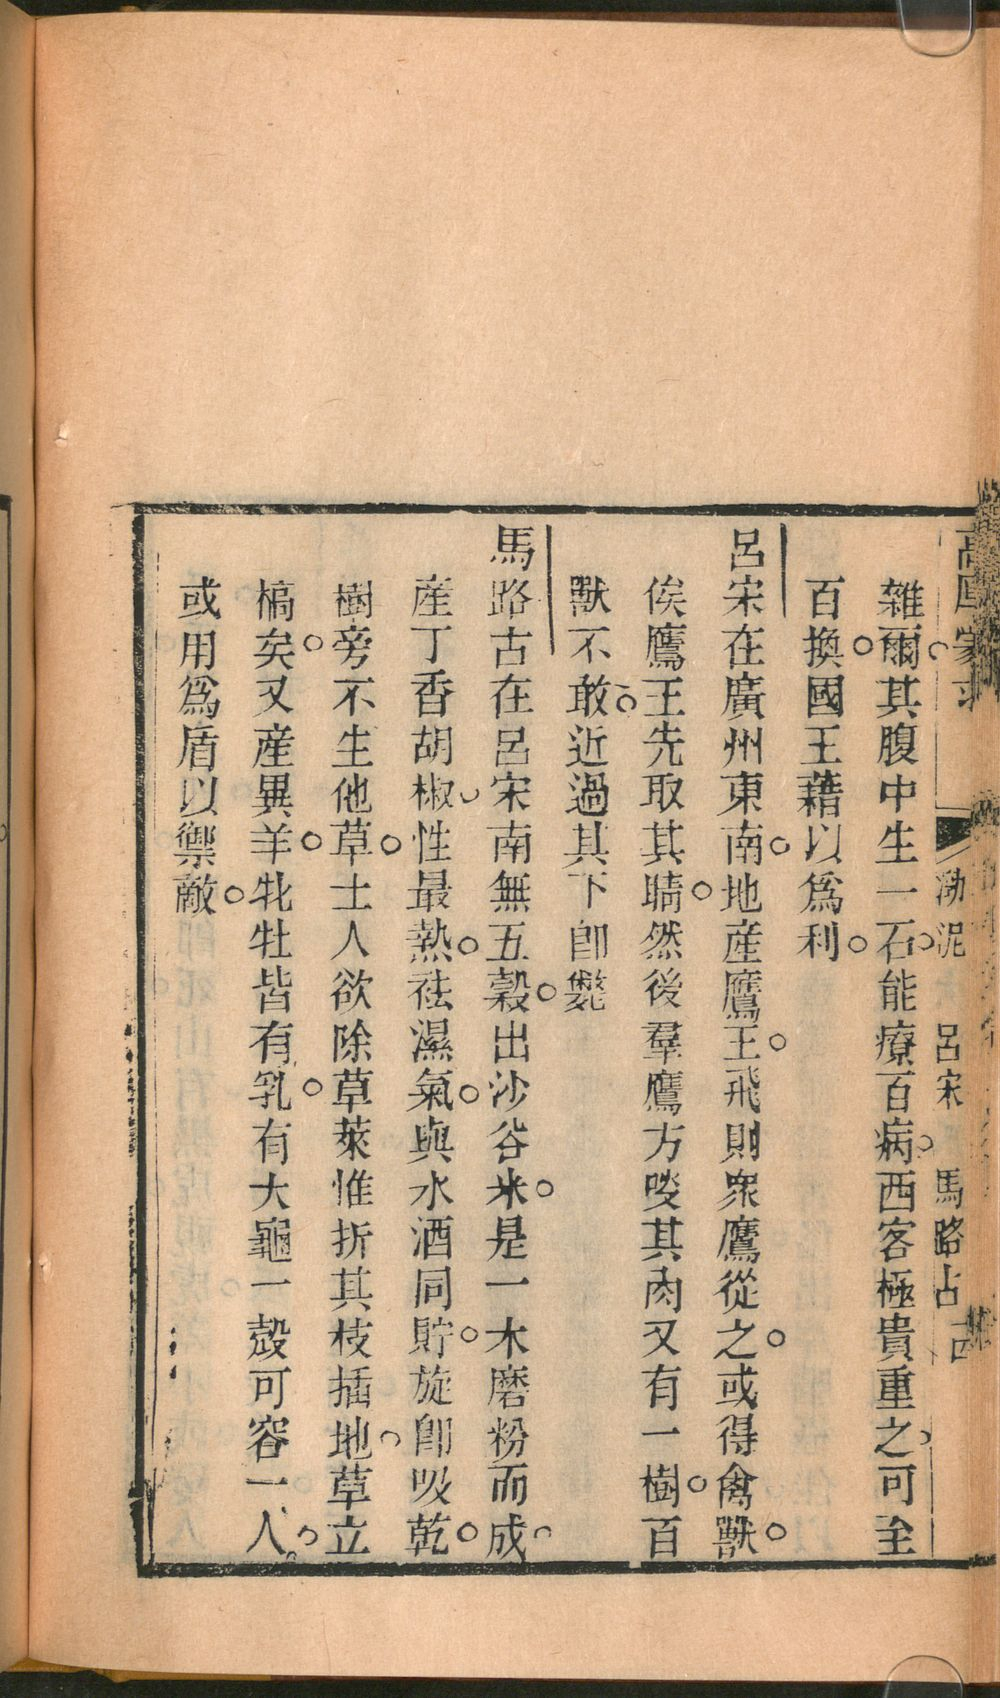 渤泥 呂宋 馬路古
雜爾其腹中生一石能療百病西客極貴重之可至
百換國王藉以爲利
呂宋在廣州東南地產鷹王飛則衆鷹從之或得禽獸
俟鷹王先取其睛然後羣鷹方啖其肉又有一樹百
獸不敢近過其下卽斃
馬路古在呂宋南無五穀出沙谷米是一木磨粉而成
產丁香胡椒性最熱祛濕氣與水酒同貯旋卽吸乾
樹旁不生他草土人欲除草萊惟折其枝插地草立
槁矣又產異羊牝牡皆有乳有大龜一殼可容一人
或用爲盾以禦敵